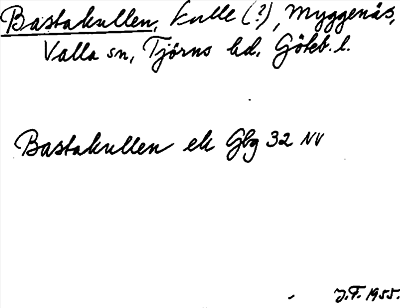 Bastakullen, kulle (?), Myggenäs,
Valla sn, Tjörns hd. Göteb. l.
Bastakullen ek Gbg 32 NV
J.F. 1955.